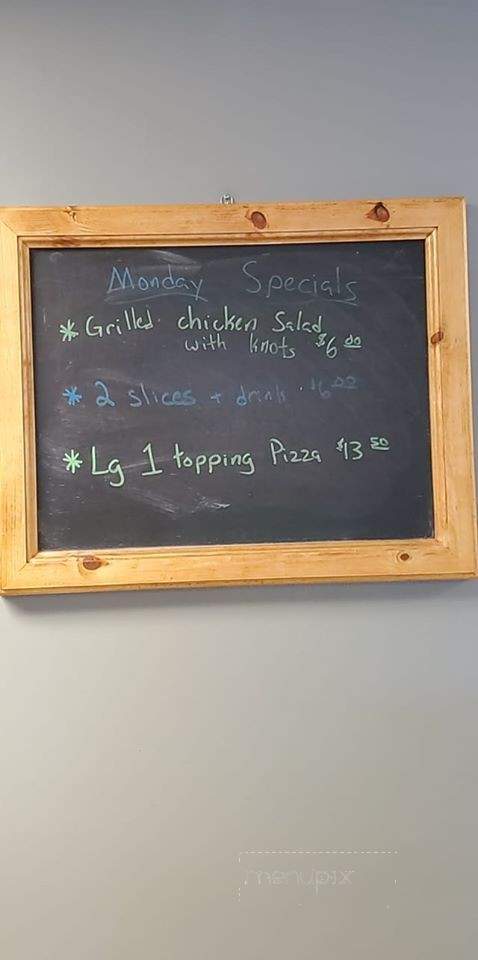 Monday Specials
* Grilled chicken Salad
with knots $6 00
* 2 slices + drink $6 00
* Lg 1 topping Pizza $13 50
menupix